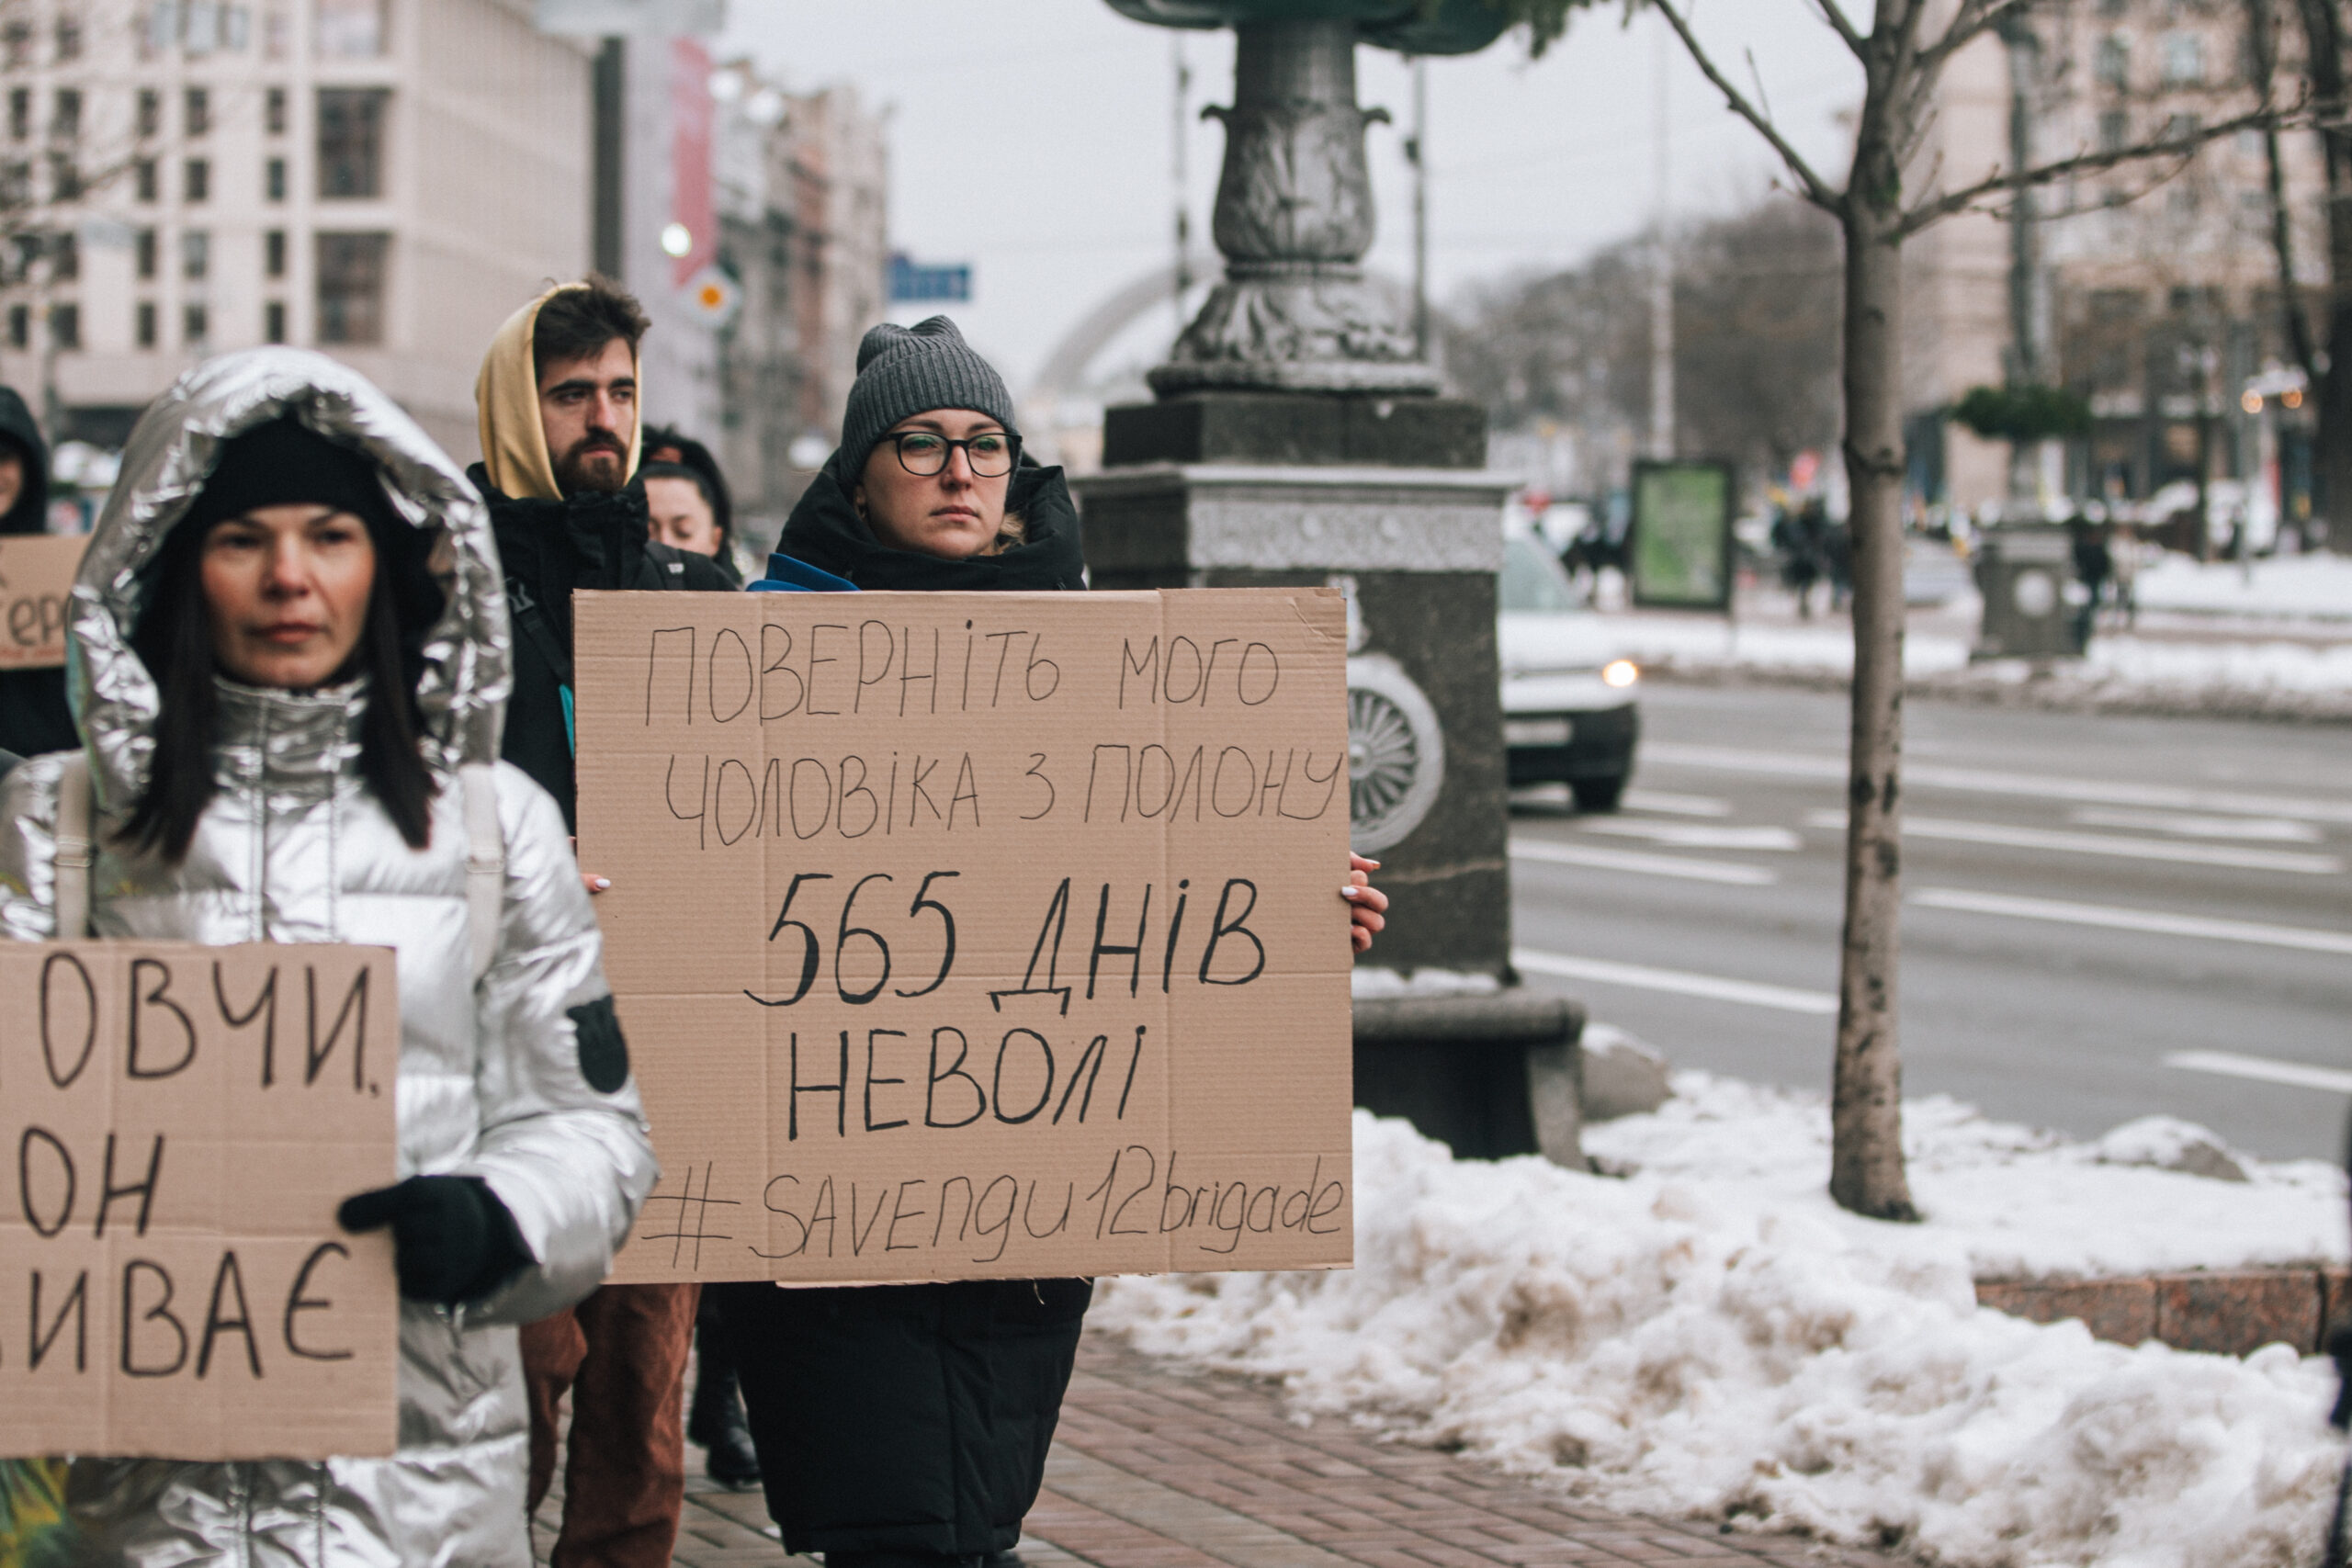 ПОВЕРНІТЬ МОГО
ЧОЛОВІКА З ПОЛОНУ
565 ДНІВ
НЕВОЛІ
#SAVEngu12brigade